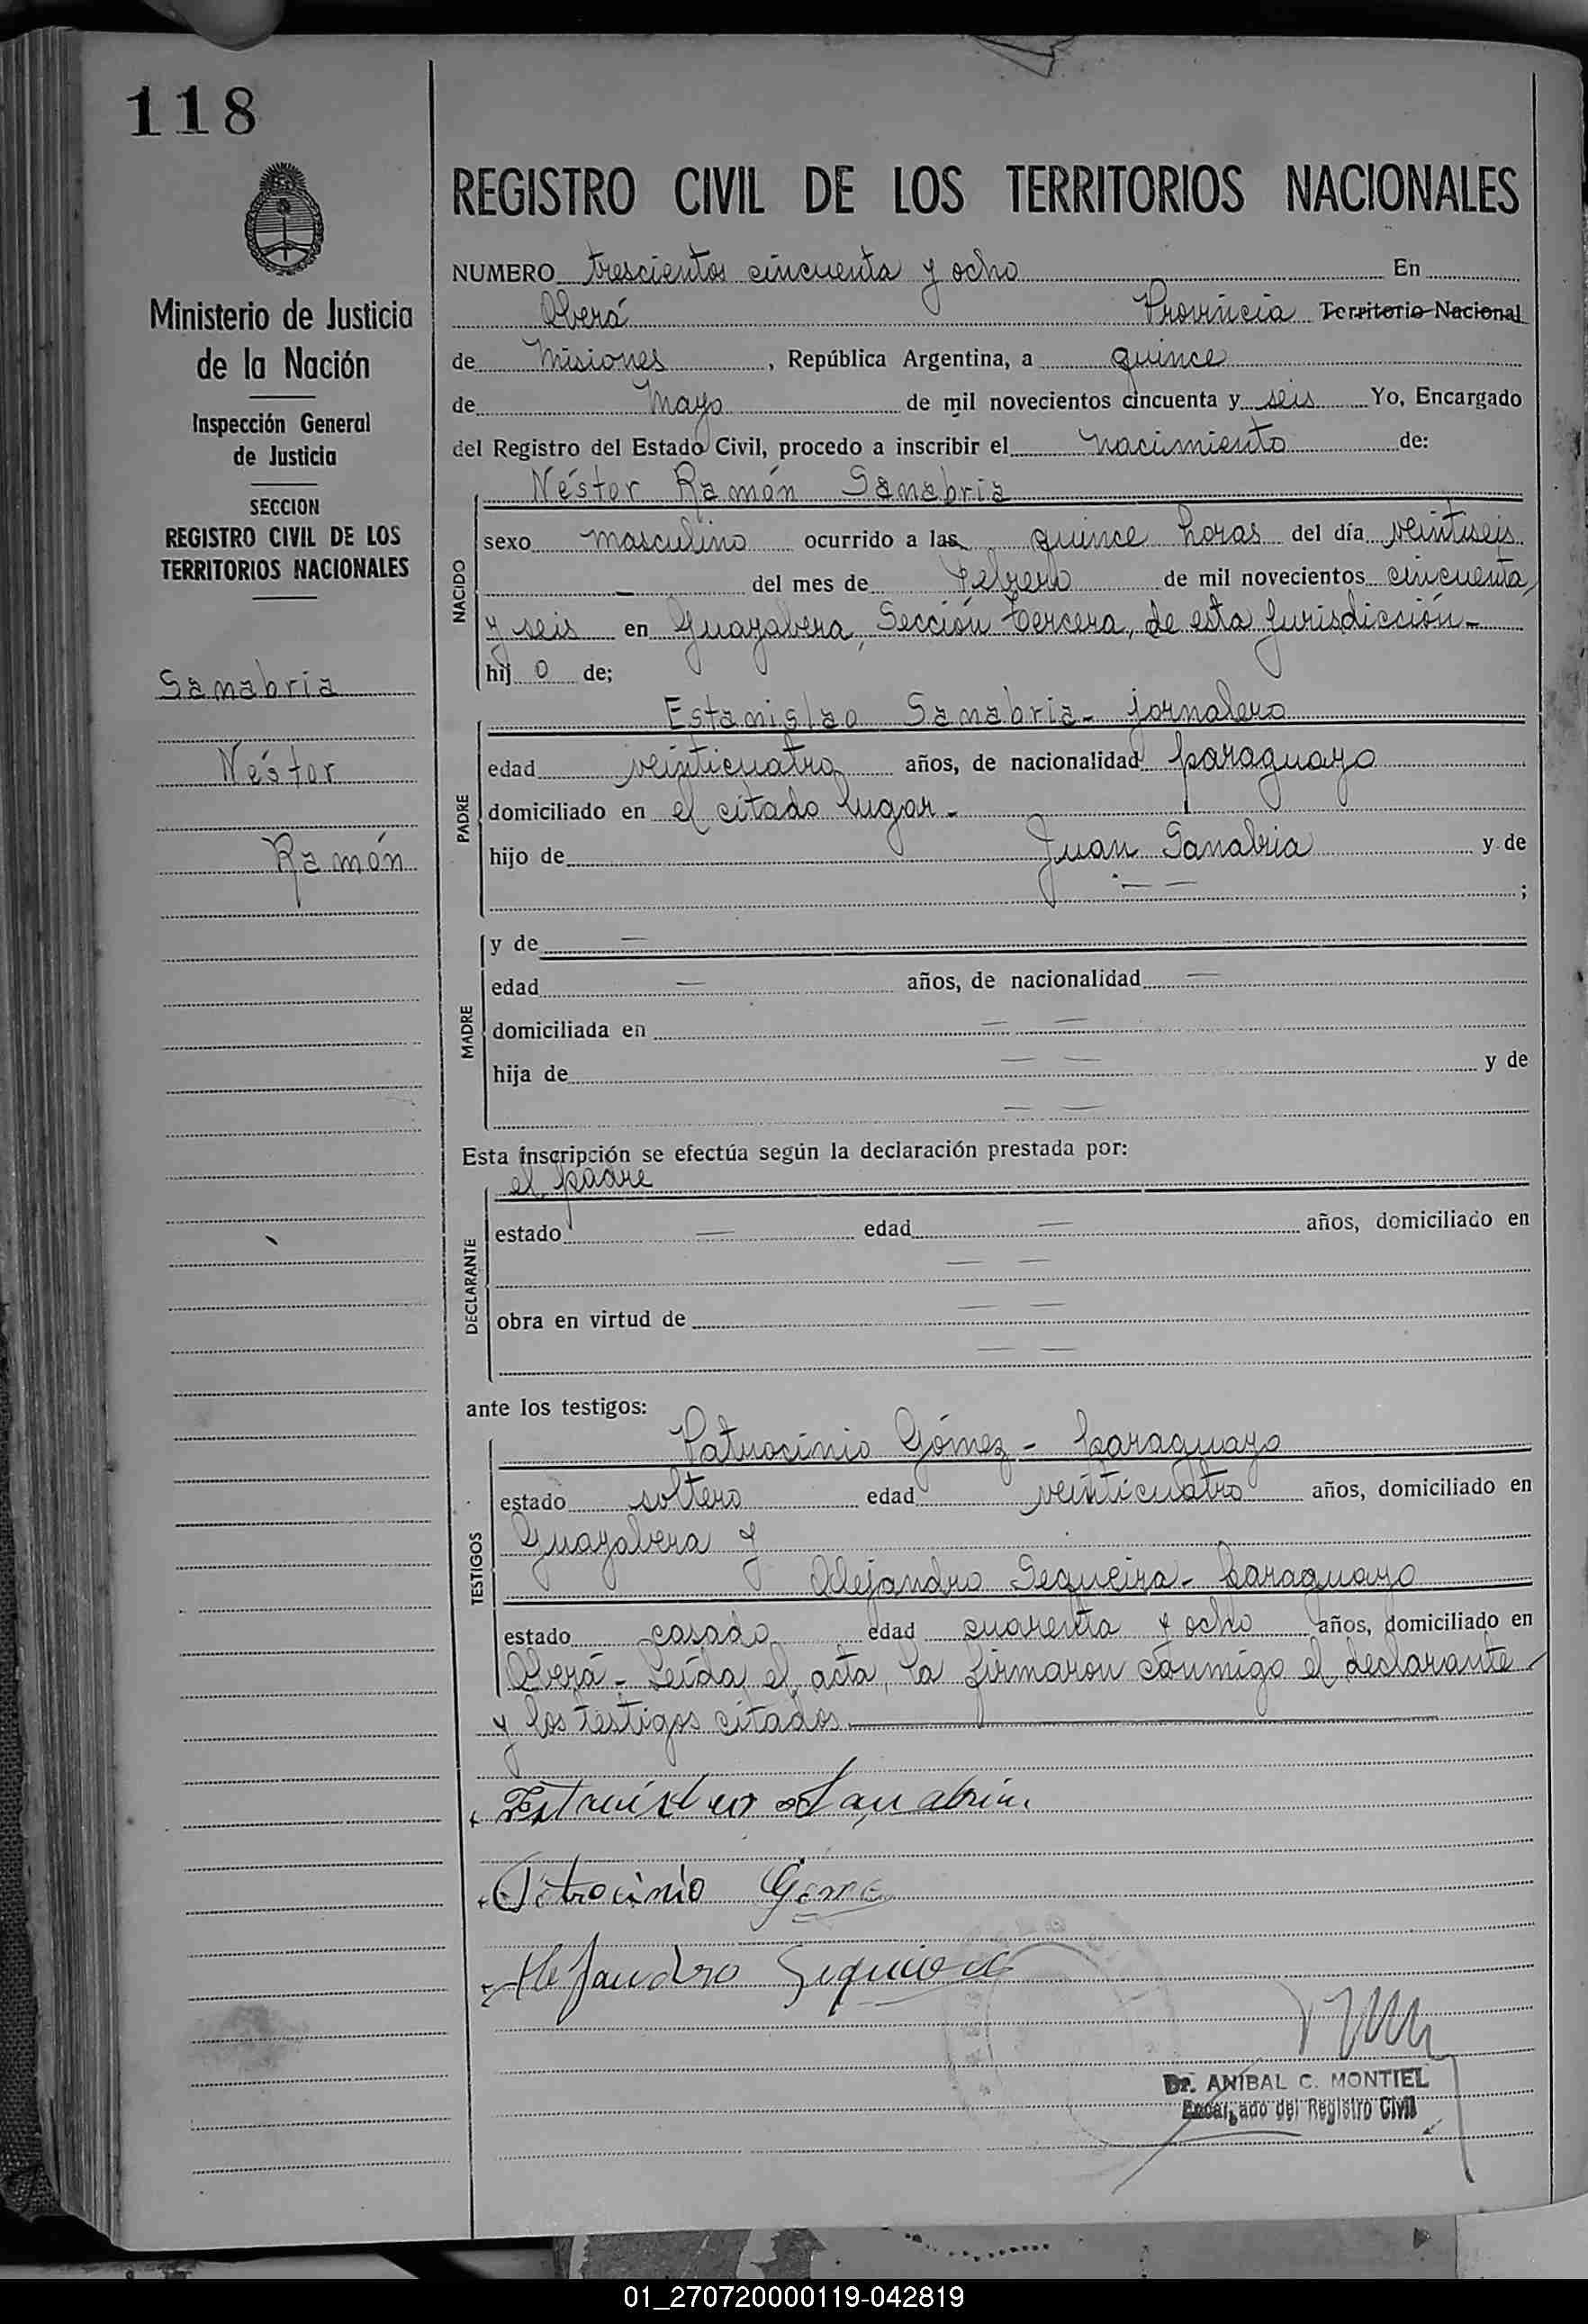 118
Ministerio de Justicia
de la Nación
Inspección General
de Justicia
SECCION
REGISTRO CIVIL DE LOS
TERRITORIOS NACIONALES
Sanabria
Néstor
Ramón
REGISTRO CIVIL DE LOS TERRITORIOS NACIONALES
NUMERO trescientos cincuenta y ocho En
Oberá Provincia Territorio Nacional
de Misiones, República Argentina, a quince
de Mayo de mil novecientos cincuenta y seis Yo, Encargado
del Registro del Estado Civil, procedo a inscribir el nacimiento de:
Néstor Ramón Sanabria
NACIDO
sexo masculino ocurrido a las quince horas del día veintiseis
— del mes de Febrero de mil novecientos cincuenta
y seis en Guayabera, Sección tercera, de esta Jurisdicción-
hij o de;
PADRE
Estanislao Sanabria- jornalero
edad veinticuatro años, de nacionalidad paraguayo
domiciliado en el citado lugar-
hijo de Juan Sanabria y de
— — ;
MADRE
y de —
edad — años, de nacionalidad —
domiciliada en — —
hija de — — y de
— —
Esta inscripción se efectúa según la declaración prestada por:
el padre
DECLARANTE
estado — edad — años, domiciliado en
— —
obra en virtud de — —
— —
ante los testigos:
TESTIGOS
Patrocinio Gómez - paraguayo
estado soltero edad veinticuatro años, domiciliado en
Guayabera y
Alejandro Sequeira- paraguayo
estado casado edad cuarenta y ocho años, domiciliado en
Oberá- Leída el acta, la firmaron conmigo el declarante
y los testigos citados
Estanislao Sanabria
Patrocinio Gome
Alejandro Sequiera
Dr. ANIBAL C. MONTIEL
Encargado del Registro Civil
01_270720000119-042819